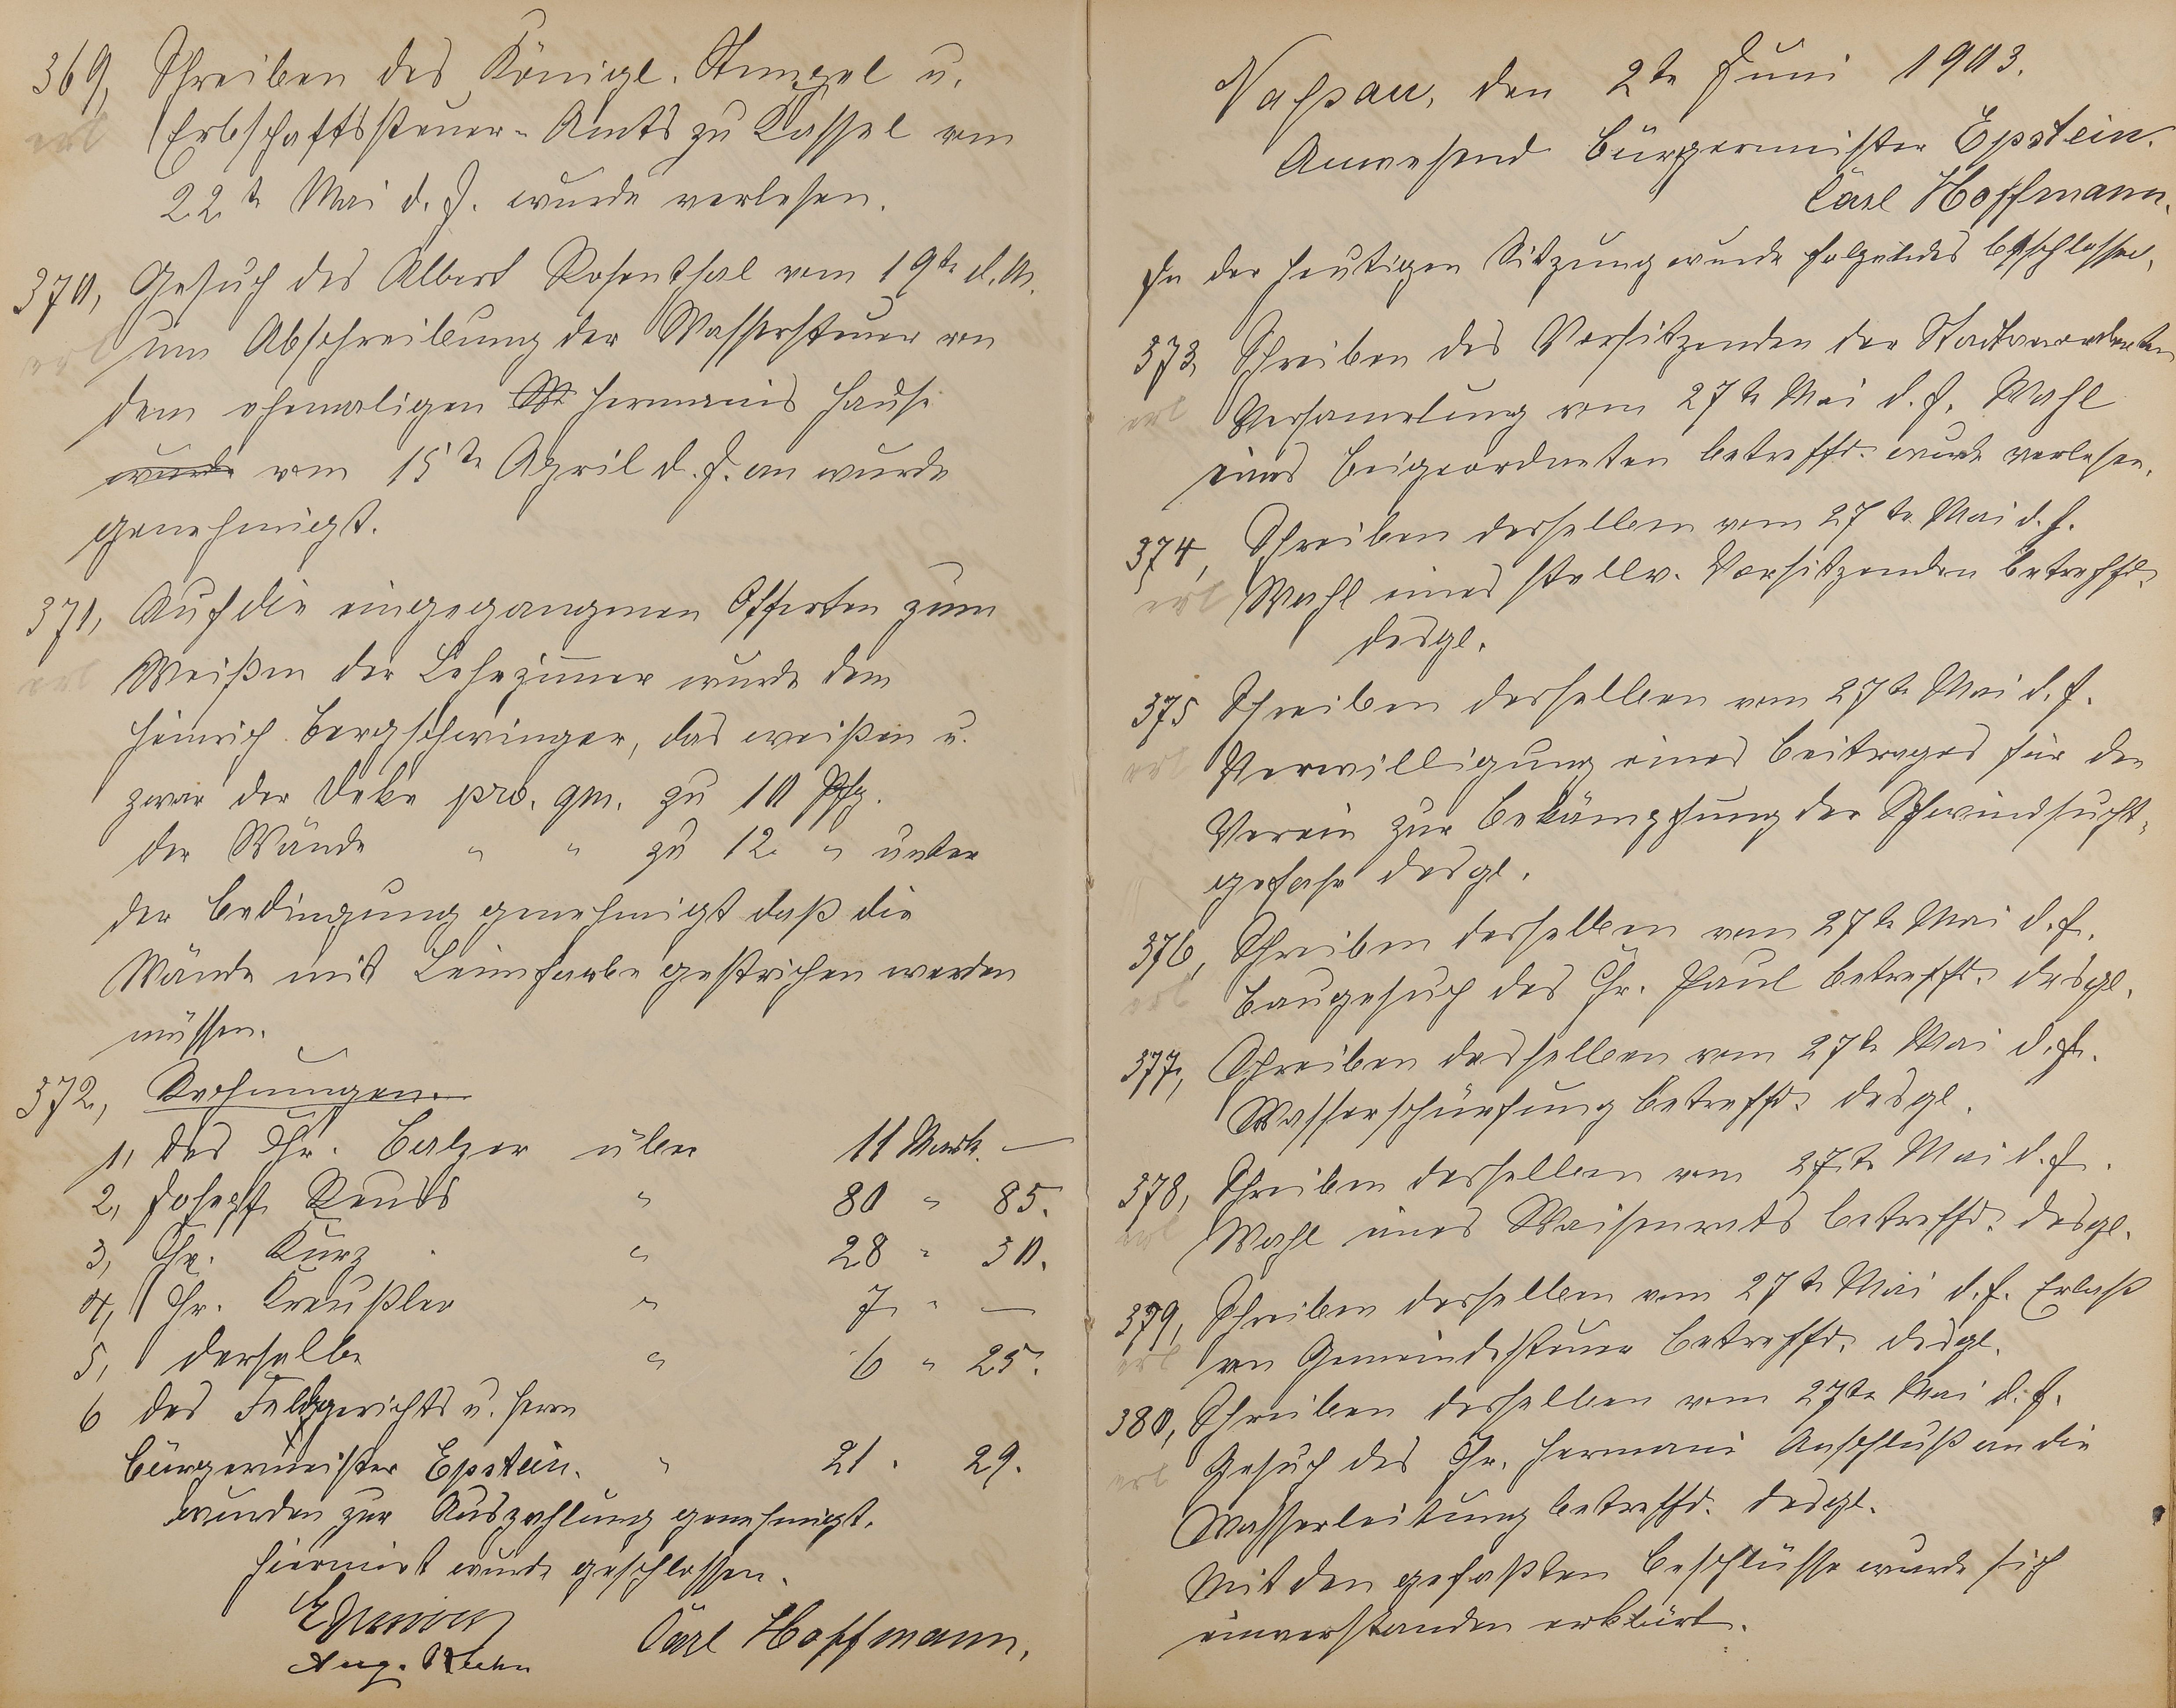 369, Schreiben des Königl. Stempel u.
erl Erbschaftssteuer-Amts zu Cassel vom
22te Mai d. J. wurde verlesen.
370, Gesuch des Albert Rosenthal vom 19te d. M.
erl um Abschreibung der Wassersteuer von
dem ehemaligen Hermanis Hause
wurde vom 15te April d. J. an wurde
genehmigt.
371, Auf die eingegangenen Offerten zum
erl Weißen der Lehrzimmer wurde dem
Heinrich Bergschwinger, das weißen u.
zwar der Deke pro. qm. zu 10 Pfg.
der Wände " " zu 12 " unter
der Bedingung genehmigt daß die
Wände mit Leimfarbe gestrichen werden
müssen.
372, Rechnungen
1, des Chr. Balzer über 11 Mark. —
2, Joseph Reuss " 80 " 85.
3, Chr. Kurz " 28 " 30.
4, Chr. Kreußler " 7 " —
5, derselbe " 6 " 25.
6 des Feldgerichts u. Herrn
Bürgermeister Epstein. " 21 . 29.
wurden zur Auszahlung genehmigt.
Hiermit wurde geschlossen.
Epstein
Aug. Kuhn Carl Hoffmann.
Nassau, den 2te Juni 1903.
Anwesend Bürgermeister Epstein.
Carl Hoffmann.
In der heutigen Sitzung wurde folgendes beschlossen,
373, Schreiben des Vorsitzenden der Stadtverordneten
erl Versamelung vom 27te Mai d. J. Wahl
eines Beigeordneten betreffd. wurde verlesen.
374, Schreiben desselben vom 27te Mai d. J.
erl Wahl eines stellv. Vorsitzenden betreffd.
desgl.
375 Schreiben desselben vom 27te Mai d. J.
erl Verwilligung eines Beitrages für den
Verein zur Bekämpfung der Schwindsucht-
gefahr desgl.
376, Schreiben desselben vom 27te Mai d. J.
erl Baugesuch des Chr. Paul betreffd. desgl.
377, Schreiben desselben vom 27te Mai d. J.
Wasserschürfung betreffd. desgl.
378, Schreiben desselben vom 27te Mai d. J.
erl Wahl eines Waisenrats betreffd. desgl.
379, Schreiben desselben vom 27te Mai d. J. Erlaß
erl von Gemeindesteuer betreffd. desgl.
380, Schreiben desselben vom 27te Mai d. J.
erl Gesuch des Chr. Hermani Anschluß an die
Wasserleitung betreffd. desgl.
Mit den gefaßten Beschlüsse wurde sich
einverstanden erklärt.